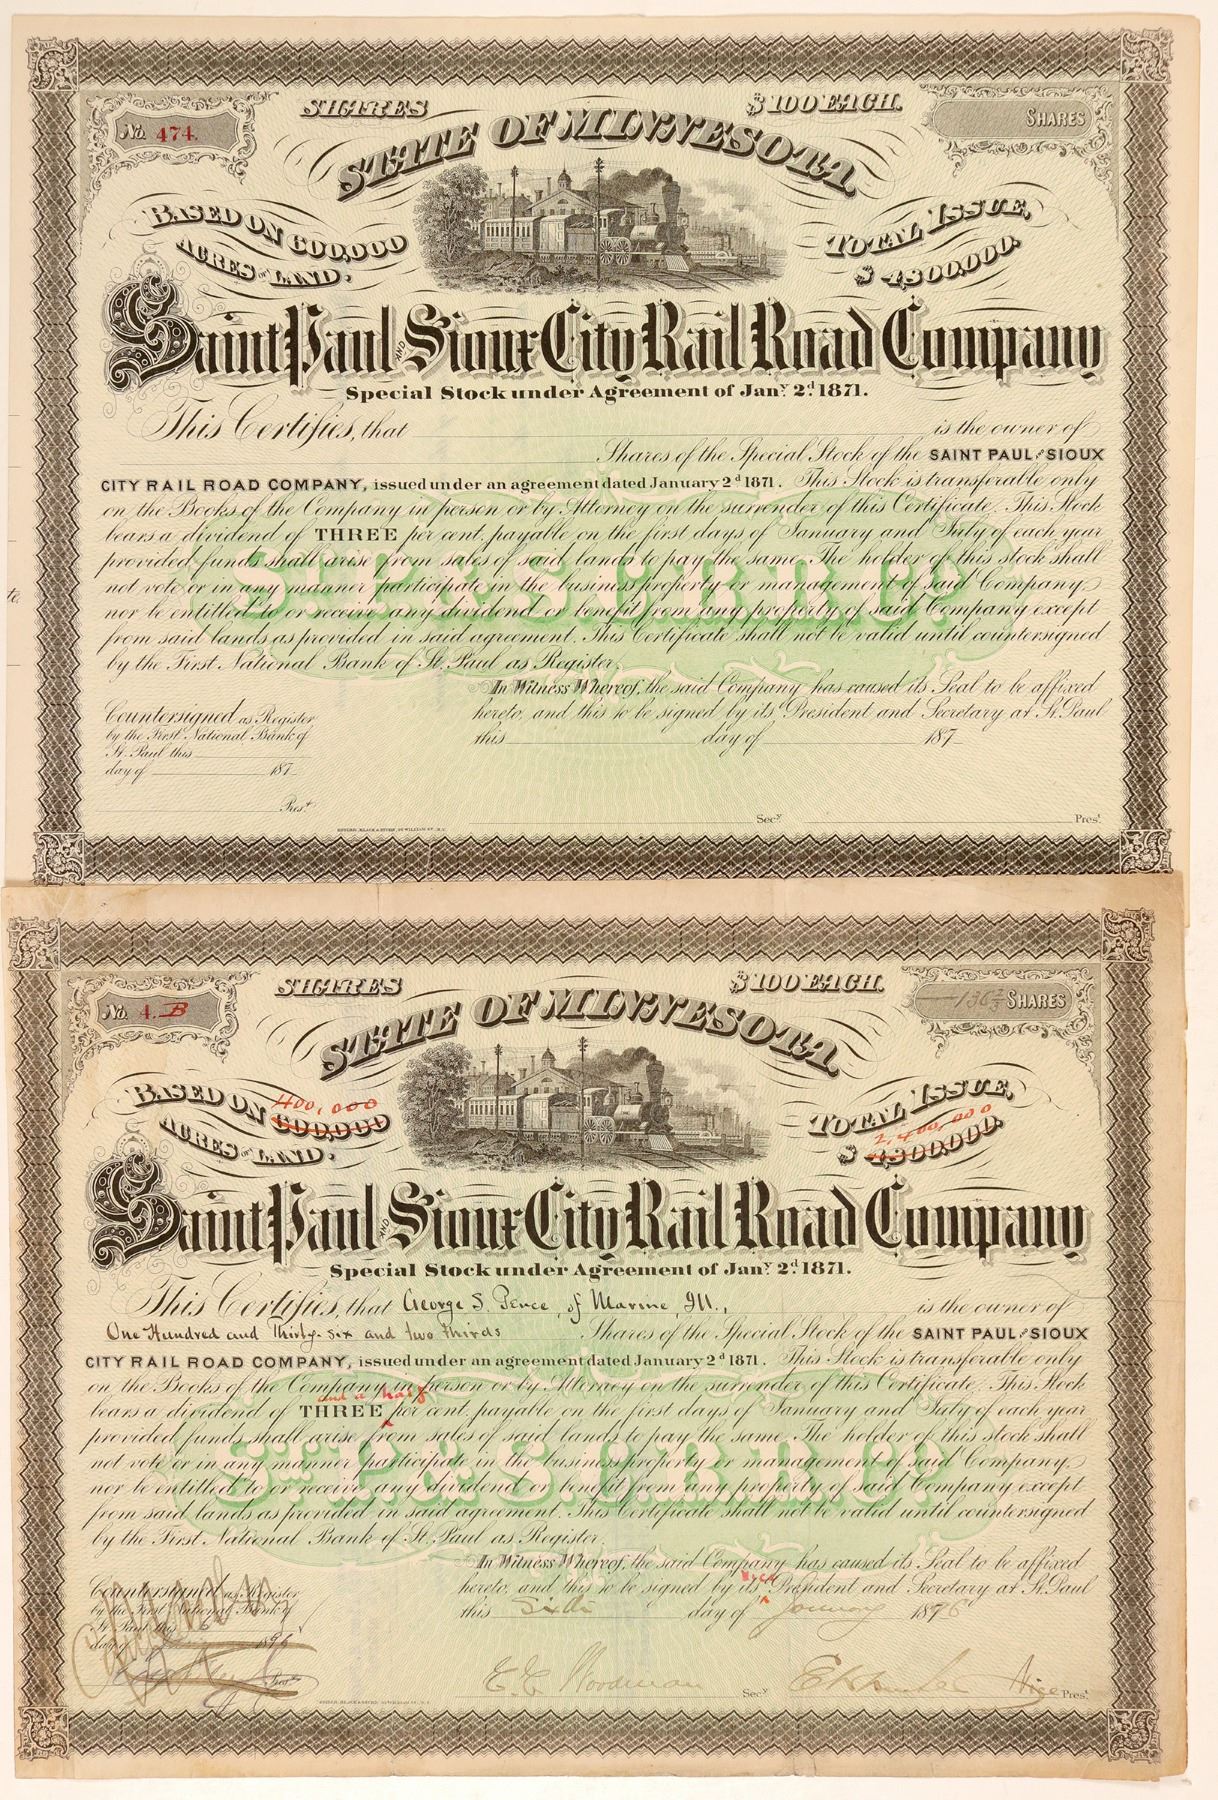 SHARES $100 EACH.
No. 474.
SHARES
STATE OF MINNESOTA.
BASED ON 600,000
ACRES OF LAND.
TOTAL ISSUE,
$4,800,000.
Saint Paul AND Sioux City Rail Road Company
Special Stock under Agreement of Jany. 2d. 1871.
This Certifies, that is the owner of
Shares of the Special Stock of the SAINT PAUL AND SIOUX
CITY RAIL ROAD COMPANY, issued under an agreement dated January 2d 1871. This Stock is transferable only
on the Books of the Company in person or by Attorney on the surrender of this Certificate. This Stock
bears a dividend of THREE per cent. payable on the first days of January and July of each year
provided funds shall arise from sales of said lands to pay the same. The holder of this stock shall
not vote or in any manner participate in the business property or management of said Company,
nor be entitled to or receive any dividend or benefit from any property of said Company except
from said lands as provided in said agreement. This Certificate shall not be valid until countersigned
by the First National Bank of St. Paul as Register.
St. P. & S. C. R. R. Co.
In Witness Whereof, the said Company has caused its Seal to be affixed
hereto, and this to be signed by its President and Secretary at St. Paul
this day of 187
Countersigned as Register
by the First National Bank of
St. Paul this
day of 187
Prest.
Secy. Prest.
SHARES $100 EACH.
No. 4. B
136 2/3 SHARES
STATE OF MINNESOTA.
BASED ON 400,000
600,000
ACRES OF LAND.
TOTAL ISSUE,
2,400,000
$4,800,000.
Saint Paul AND Sioux City Rail Road Company
Special Stock under Agreement of Jany. 2d. 1871.
This Certifies, that George S. Pence, of Marine, Ill., is the owner of
One Hundred and Thirty-six and two thirds Shares of the Special Stock of the SAINT PAUL AND SIOUX
CITY RAIL ROAD COMPANY, issued under an agreement dated January 2d 1871. This Stock is transferable only
on the Books of the Company in person or by Attorney on the surrender of this Certificate. This Stock
and a half
bears a dividend of THREE per cent. payable on the first days of January and July of each year
provided funds shall arise from sales of said lands to pay the same. The holder of this stock shall
not vote or in any manner participate in the business property or management of said Company,
nor be entitled to or receive any dividend or benefit from any property of said Company except
from said lands as provided in said agreement. This Certificate shall not be valid until countersigned
by the First National Bank of St. Paul as Register.
St. P. & S. C. R. R. Co.
In Witness Whereof, the said Company has caused its Seal to be affixed
Vice
hereto, and this to be signed by its President and Secretary at St. Paul
this Sixth day of January 1896
Countersigned as Register
by the First National Bank of
St. Paul this 6
day of 1896
Prest.
E. E. Woodman Secy. Vice Prest.